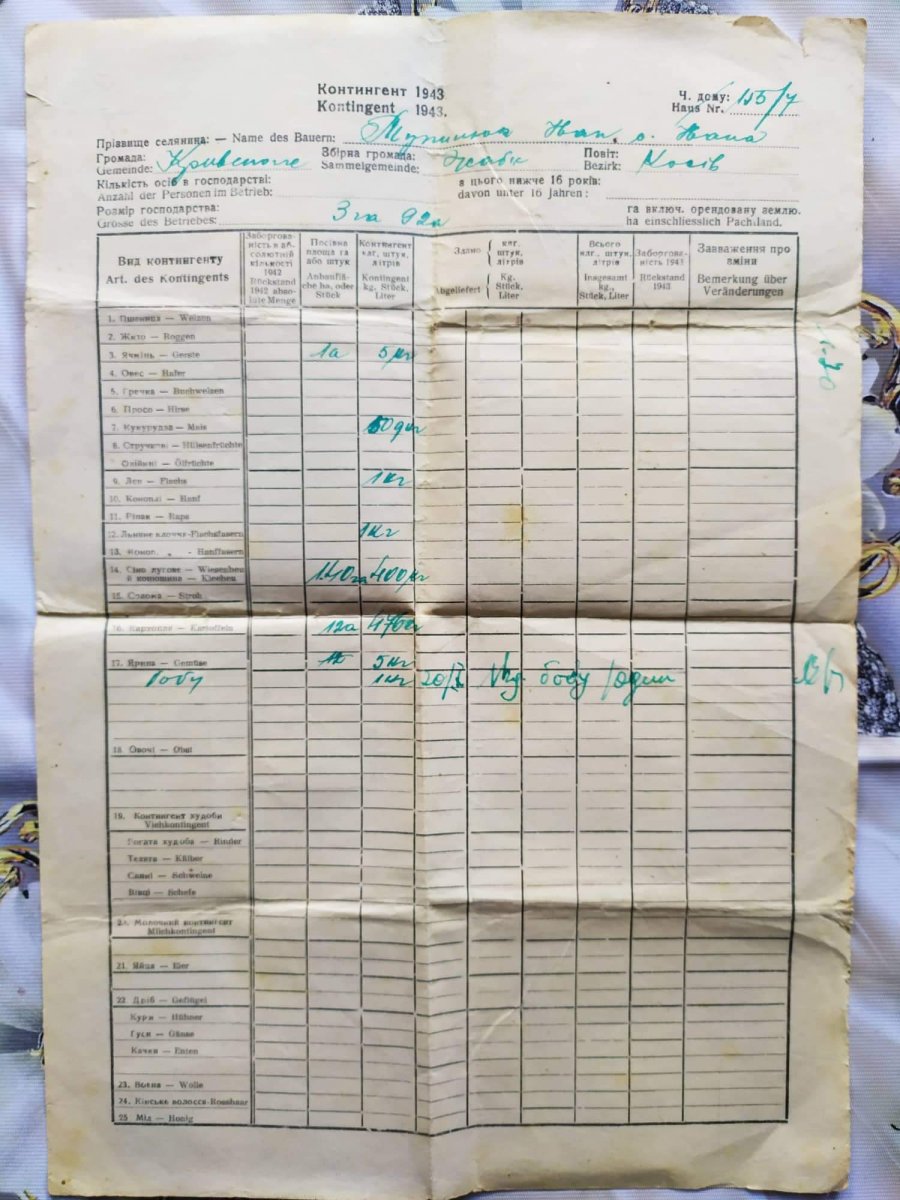 Контингент 1943
Kontingent 1943.
Ч. дому: 155/7
Haus Nr.
Прізвище селянина: — Name des Bauern: Іван, о. Івана
Громада: Збірна громада: Жабє Повіт: Косів
Gemeinde: Криве поле Sammelgemeinde: Bezirk:
Кількість осіб в господарстві: з цього нижче 16 років:
Anzahl der Personen im Betrieb: davon unter 16 Jahren:
Розмір господарства: 3 га 92а га включ. орендовану землю.
Grösse des Betriebes: ha einschliesslich Pachtland.
Вид контингенту
Art. des Kontingents
Заборгова-
ність в аб-
солютній
кількості
1942
Rückstand
1942 abso-
lute Menge
Посівна
площа га
або штук
Anbauflä-
che ha, oder
Stück
Контингент
клг, штук,
літрів
Kontingent
kg, Stück,
Liter
Здано
Abgeliefert
клг.
штук,
літрів
Kg.
Stück,
Liter
Всього
клг., штук,
літрів
Insgesamt
kg.,
Stück, Liter
Заборгова-
ність 1943
Rückstand
1943
Завваження про
зміни
Bemerkung über
Veränderungen
1. Пшениця — Weizen
2. Жито — Roggen
3. Ячмінь — Gerste 1а 5 кг
4. Овес — Hafer
5. Гречка — Buchweizen
6. Просо — Hirse
7. Кукурудза — Mais
8. Стручкові — Hülsenfrüchte
Олійні — Ölfrüchte
9. Лен — Flachs 1кг
10. Коноплі — Hanf
11. Ріпак — Raps
12. Льняне клоччя-Flachsfasern 1кг
13. Коноп. „ - Hanffasern
14. Сіно лугове — Wiesenheu 400 кг
й конюшина — Kleeheu
15. Солома — Stroh
16. Картопля — Kartoffeln 12а 476 кг
17. Ярина — Gemüse 5 кг
бобу 1кг бобу
18. Овочі — Obst
19. Контингент худоби
Viehkontingent
Рогата худоба — Rinder
Телята — Kälber
Свині — Schweine
Вівці — Schafe
20. Молочний контингент
Milchkontingent
21. Яйця — Eier
22 Дріб — Geflügel
Кури — Hühner
Гуси — Gänse
Качки — Enten
23. Вовна — Wolle
24. Кінське волосся-Rosshaar
25 Мід — Honig